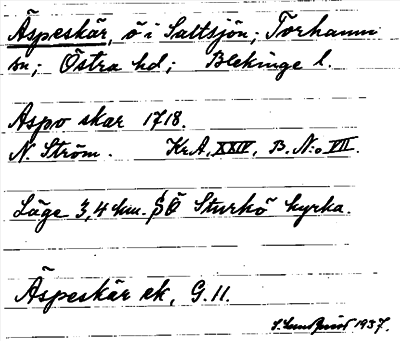 Äspeskär, ö i Saltsjön; Torhamn
sn; Östra hd; Blekinge l.
Aspo skar 1718.
N. Ström. KrA, XXIV, B. N:o VII.
Läge 3,4 km. SÖ Sturkö kyrka.
Äspeskär ek, G. 11.
1937.